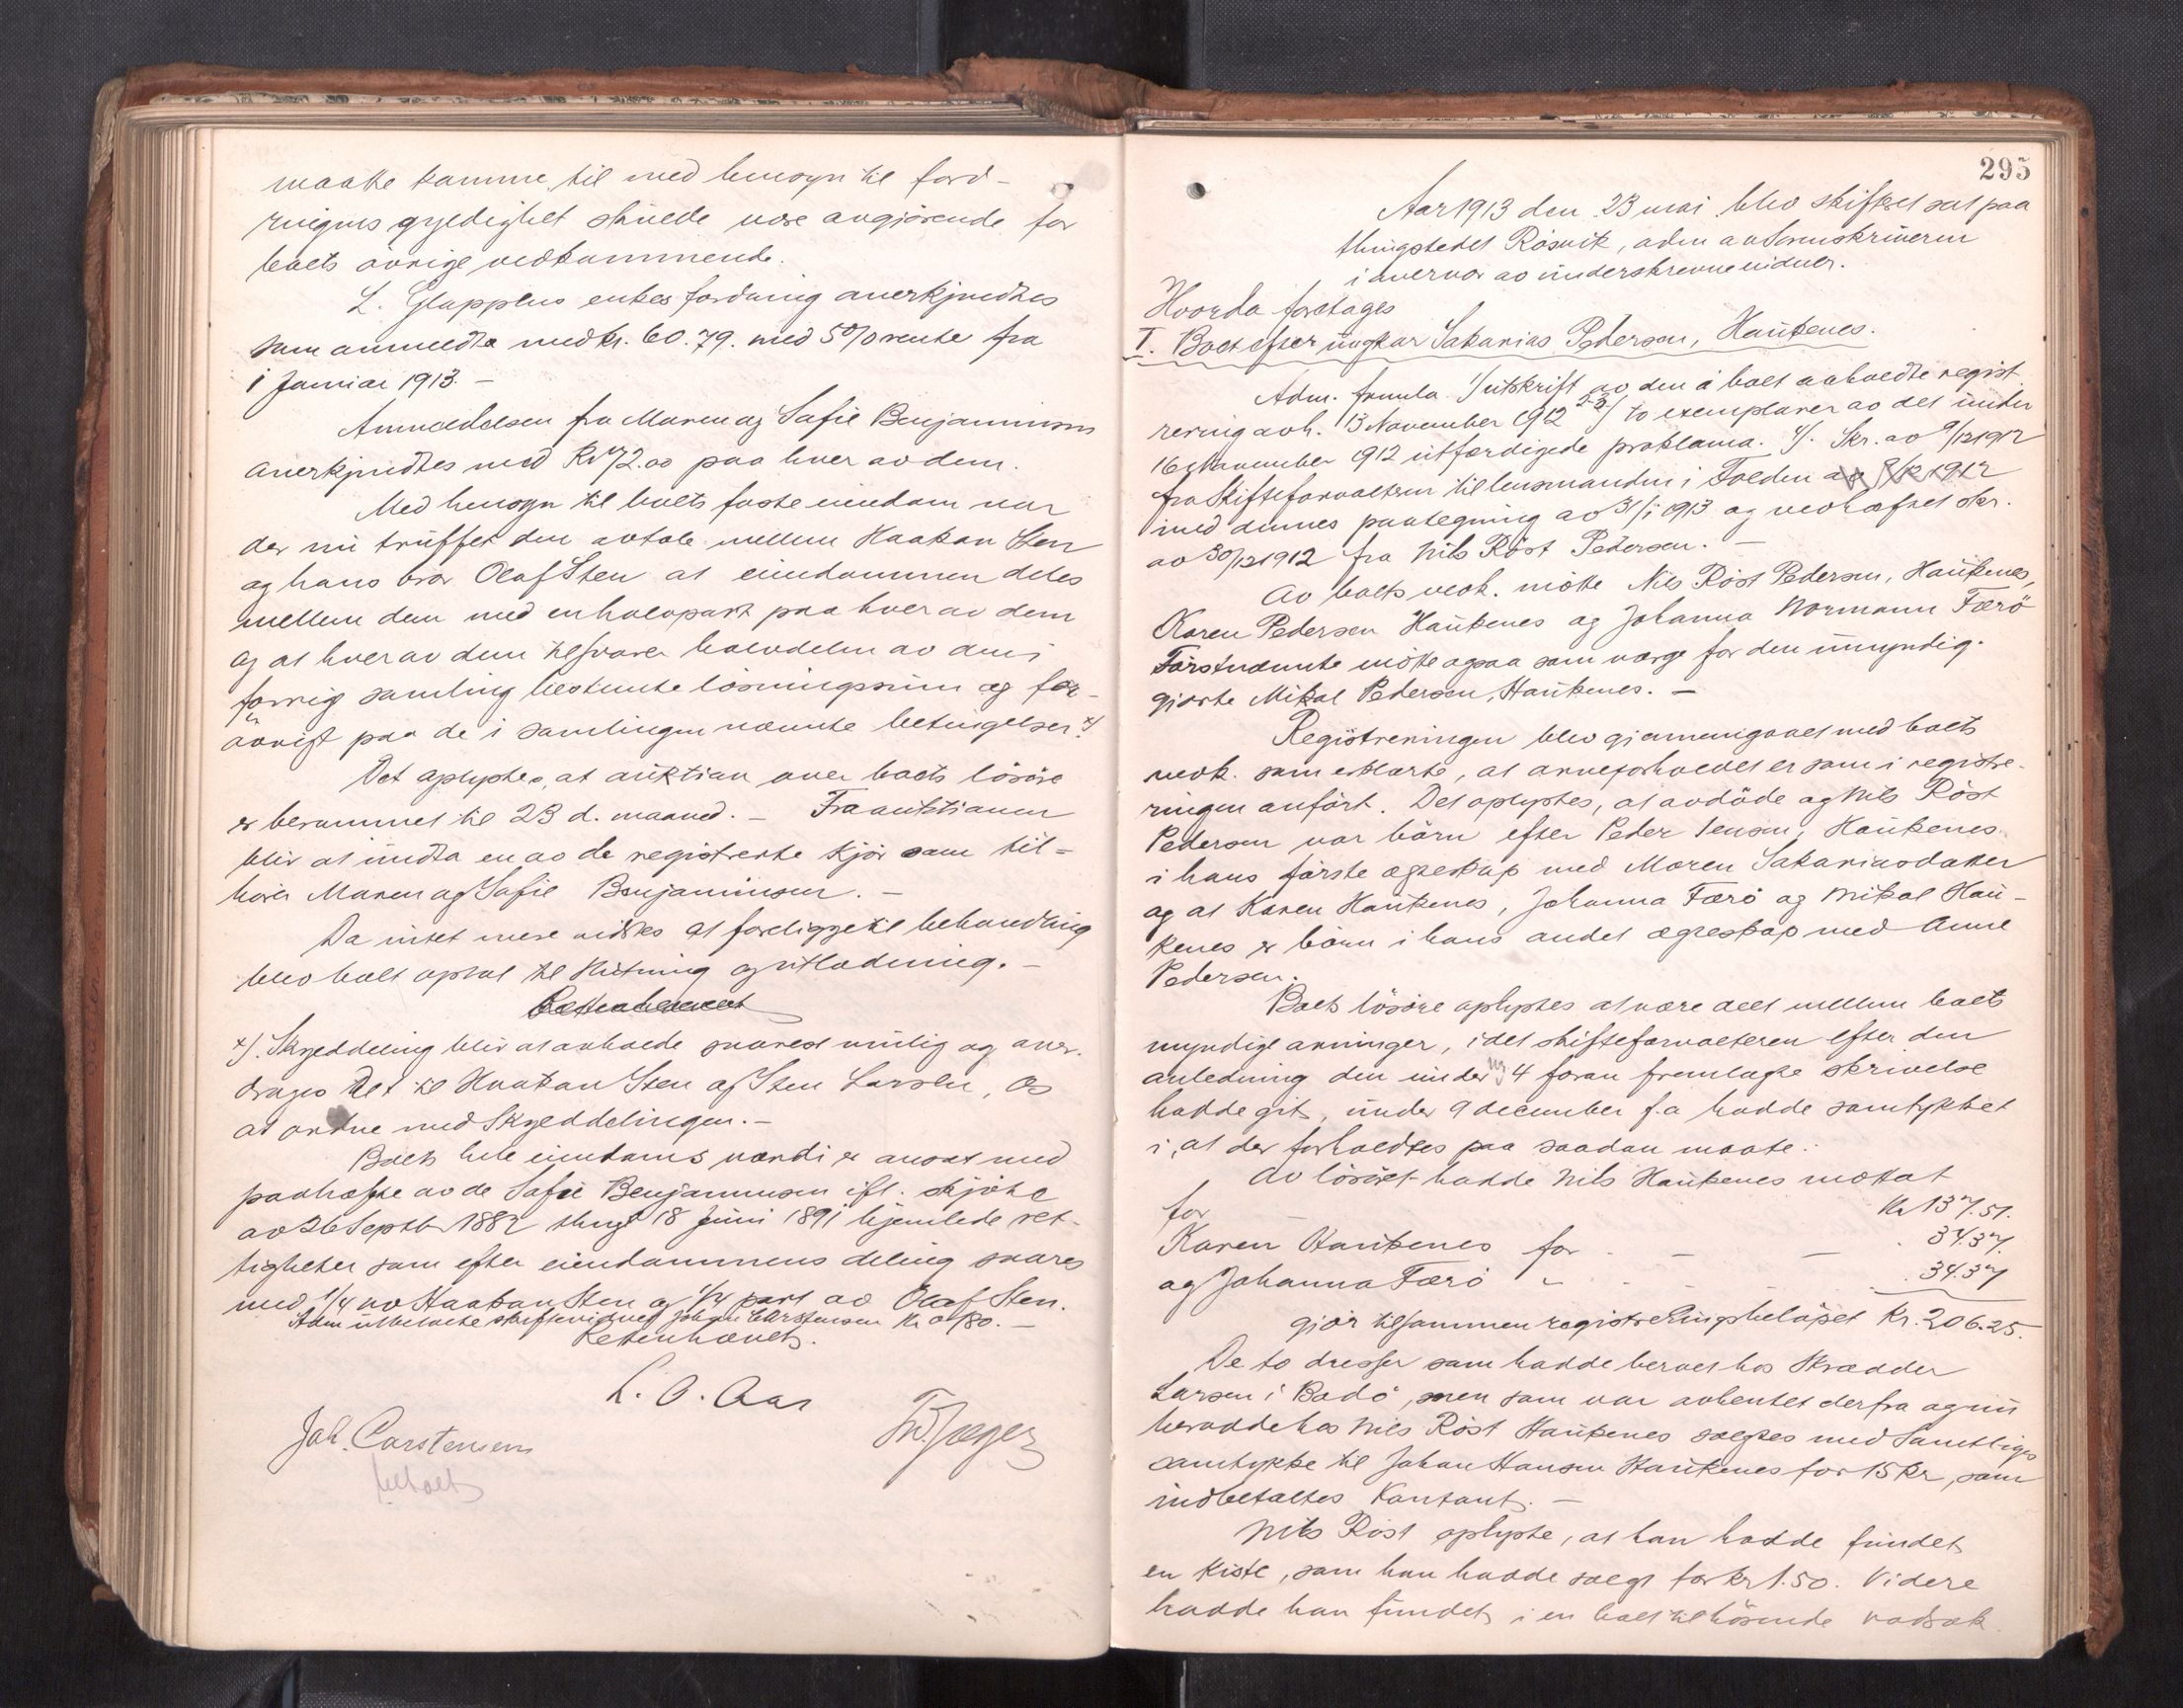 maatte komme til med hensyn til ford-
ringens gyldighet skulde være avgjörende for
boets övrige vedkommende.
L. Glapplus enkes fordring anerkjendtes
som anmeldte med kr. 60.79. med 5% rente fra
1 Januar 1913. –
Anmeldelsen fra Maren og Sofie Benjaminsen
anerkjendtes med Kr 72.00 paa hver av dem.
Med hensyn til boets faste eiendom var
der nu truffet den avtale mellem Haakon Sten
og hans bror Olaf Sten at eiendommen deles
mellem dem med en halvpart paa hver av dem
og at hver av dem tilsvarer halvdelen av den i
forrige samling bestemte lösningssum og for-
övrigt paa de i samlingen nævnte betingelser. x)
Det oplystes, at auktion over boets lösöre
er berammet til 23 d. maaned. – Fra auktionen
blir at undta en av de registrerte kjör som til-
hörer Maren og Sofie Benjaminsen. –
Da intet mere vidstes at foreligge til behandling
blev boet optat til slutning og utlodning. –
Retten hævet
x). Skylddeling blir at avholde snarest mulig og over-
drages det til Haakon Sten og Sten Larsen, Os
at ordne med Skylddelingen. –
Boets hele eiendoms værdi er ansat med
paahæfte av de Sofie Benjaminsen ifl. skjöte
av 26 Septbr 1882 thingl 18 Juni 1891 hjemlede ret-
tigheter som efter eiendommens deling svares
med 1/4 av Haakon Sten og 1/4 part av Olaf Sten.
Adm utbetalte skiftevidnet Johan Carstensen Kr 0.80. –
Retten hævet.
L. O. Aas
Joh. Carstensen
betalt
295
Aar 1913 den 23 mai blev skifteret sat paa
thingstedet Rösvik, adm av Sorenskriveren
i övervær av underskrevne vidner.
Hvorda foretages
I. Boet efter ungkar Sakarias Pedersen, Haukenes.
Adm. fremla 1/ utskrift av den i boet avholdte regist
rering avh. 13 November 1912 2-3/ to exemplarer av det under
16 November 1912 utfærdigede proklama. 4/. Skr. av 9/12 1912
fra Skifteforvalteren til lensmanden i Folden av 9/12 1912
med dennes paategning av 31/1 1913 og vedhæftet skr.
av 30/12 1912 fra Nils Röst Pedersen. –
Av boets vedk. mötte Nils Röst Pedersen, Haukenes,
Karen Pedersen Haukenes og Johanna Normann Færö
Förstnævnte mötte ogsaa som værge for den umyndig-
gjorte Mikal Pedersen, Haukenes. –
Registreringen blev gjennemgaaet med boets
vedk. som erklærte, at arveforholdet er som i registre-
ringen anfört. Det oplystes, at avdöde og Nils Röst
Pedersen var börn efter Peder Jensen, Haukenes
i hans förste ægteskap med Maren Sakariasdatter
og at Karen Haukenes, Johanna Færö og Mikal Hau-
kenes er börn i hans andet ægteskap med Anne
Pedersen.
Boets lösöre oplystes at være delt mellem boets
myndige arvinger, idet skifteforvalteren efter den
anledning den under No 4 foran fremlagte skrivelse
hadde git, under 9 december f.a hadde samtykket
i, at der forholdtes paa saadan maate.
Av lösöret hadde Nils Haukenes mottat
for – Kr 137.51.
Karen Haukenes for – – 34.37.
og Johanna Færö " – 34.37
gjör tilsammen registreringsbelöpet Kr. 206.25.
De to dresser som hadde beroet hos Skrædder
Larsen i Bodö, men som var avhentet derfra og nu
berodde hos Nils Röst Haukenes solgtes med samtliges
samtykke til Johan Hansen Haukenes for 15 kr, som
indbetaltes kontant. –
Nils Röst oplyste, at han hadde fundet
en kiste, som han hadde solgt for kr 1.50. Videre
hadde han fundet i en boet tilhörende vadsæk